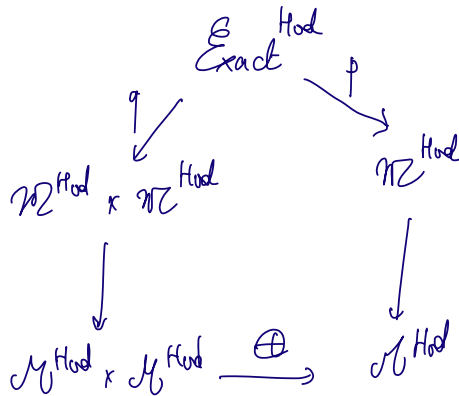 Exact^Hod
q p
𝔐^Hod × 𝔐^Hod 𝔐^Hod
ℳ^Hod × ℳ^Hod ⊕ ℳ^Hod